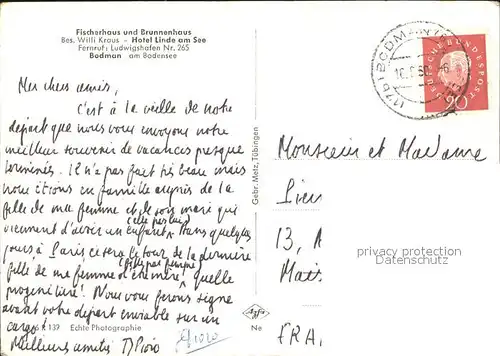 Fischerhaus und Brunnenhaus
Bes. Willi Kraus – Hotel Linde am See
Fernruf: Ludwigshafen Nr. 265
Bodman am Bodensee
Mes chers amis,
C'est à la veille de notre
départ que nous vous envoyons notre
meilleur souvenir de vacances presque
terminées. Il n'a pas fait très beau mais
nous étions en famille auprès de la
fille de ma femme et de son mari qui
viennent d'avoir un enfant. Dans quelques
jours à Paris ce sera le tour de la dernière
fille de ma femme quelle
progéniture! Nous vous ferons signe
avant votre départ enviable sur un
cargo!
Meilleures amitiés
R 139 Echte Photographie
Gebr. Metz, Tübingen
Agfa
Ne
BODMAN
DEUTSCHE BUNDESPOST
20
Monsieur et Madame
13,
privacy protection
Datenschutz
FRA